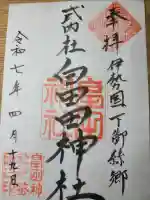 奉拝
伊勢国下御糸郷
式内社
畠田神社
令和七年四月十九日